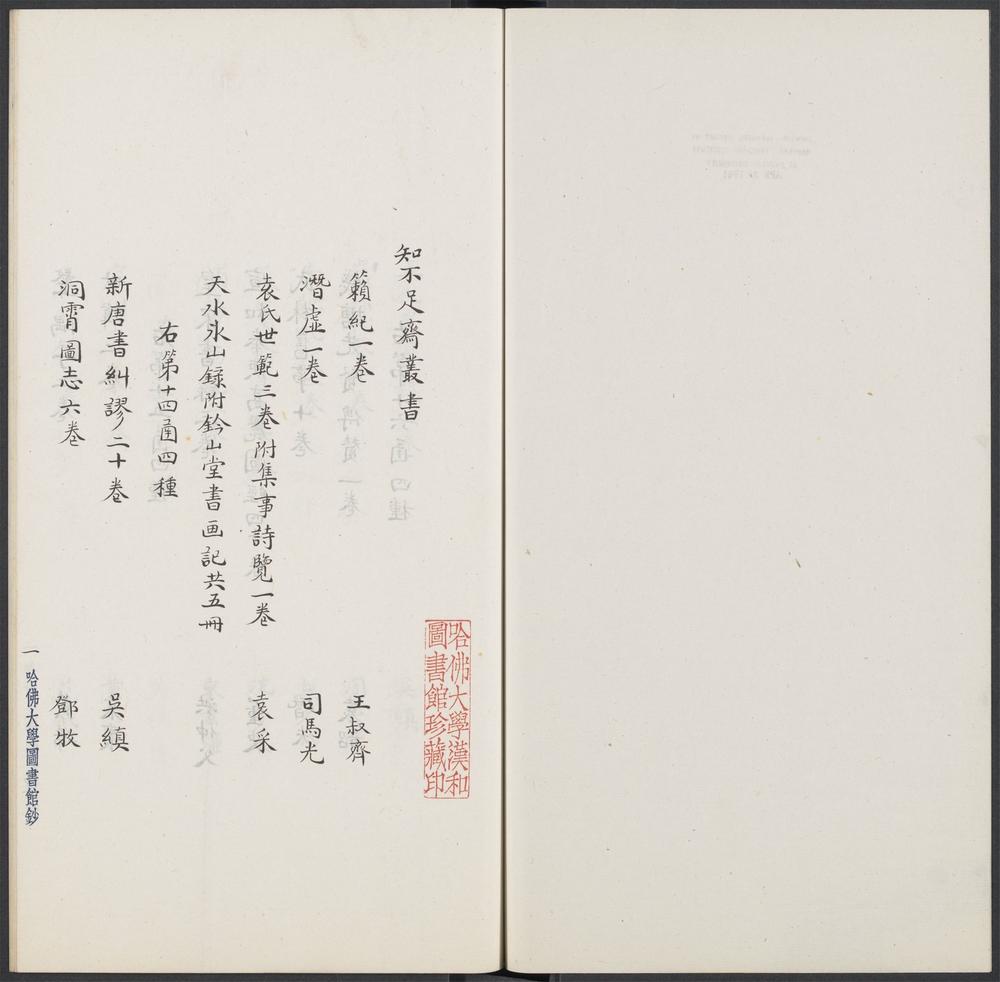 知不足齋叢書
籟紀一卷 王叔齊
潛虛一卷 司馬光
袁氏世範三卷附集事詩覽一卷 袁采
天水氷山錄附鈐山堂書画記共五冊
右第十四圅四種
新唐書糾謬二十卷 吳縝
洞霄圖志六卷 鄧牧
一 哈佛大學圖書館鈔
哈佛大學漢和
圖書館珍藏印